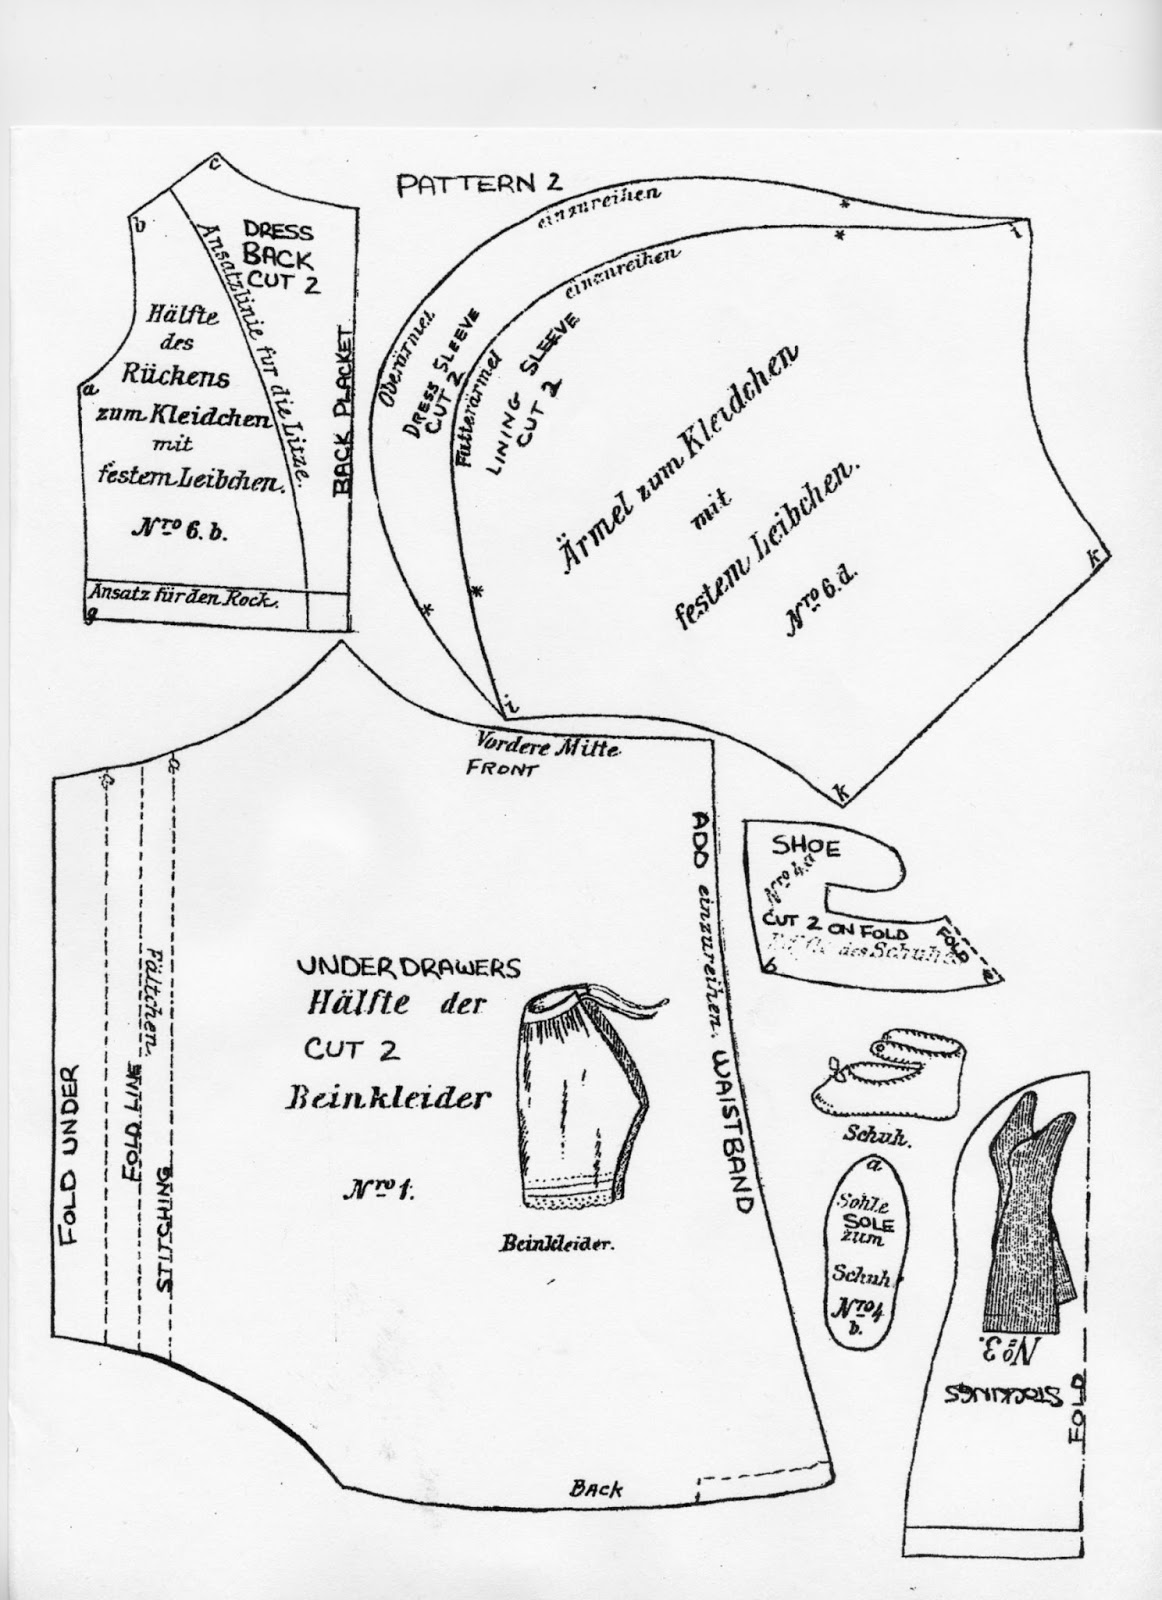 PATTERN 2
c
b
a
g
DRESS
BACK
CUT 2
Ansatzlinie für die Litze.
Hälfte
des
Rückens
zum Kleidchen
mit
festem Leibchen.
Nro 6. b.
BACK PLACKET
Ansatz für den Rock.
einzureihen
*
*
einzureihen
i
Oberärmel
DRESS SLEEVE
CUT 2
Futterärmel
LINING SLEEVE
CUT 2
Ärmel zum Kleidchen
mit
festem Leibchen.
Nro 6. d.
*
*
i
k
k
Vordere Mitte
FRONT
a
FOLD UNDER
Fältchen.
FOLD LINE
STITCHING
UNDERDRAWERS
Hälfte der
CUT 2
Beinkleider
Nro 1.
Beinkleider.
ADD einzureihen. WAISTBAND
BACK
SHOE
Nro 4. a
CUT 2 ON FOLD
des Schuhs
FOLD
b
a
Schuh.
a
Sohle
SOLE
zum
Schuh
Nro 4
b.
No 3.
STOCKINGS
FOLD